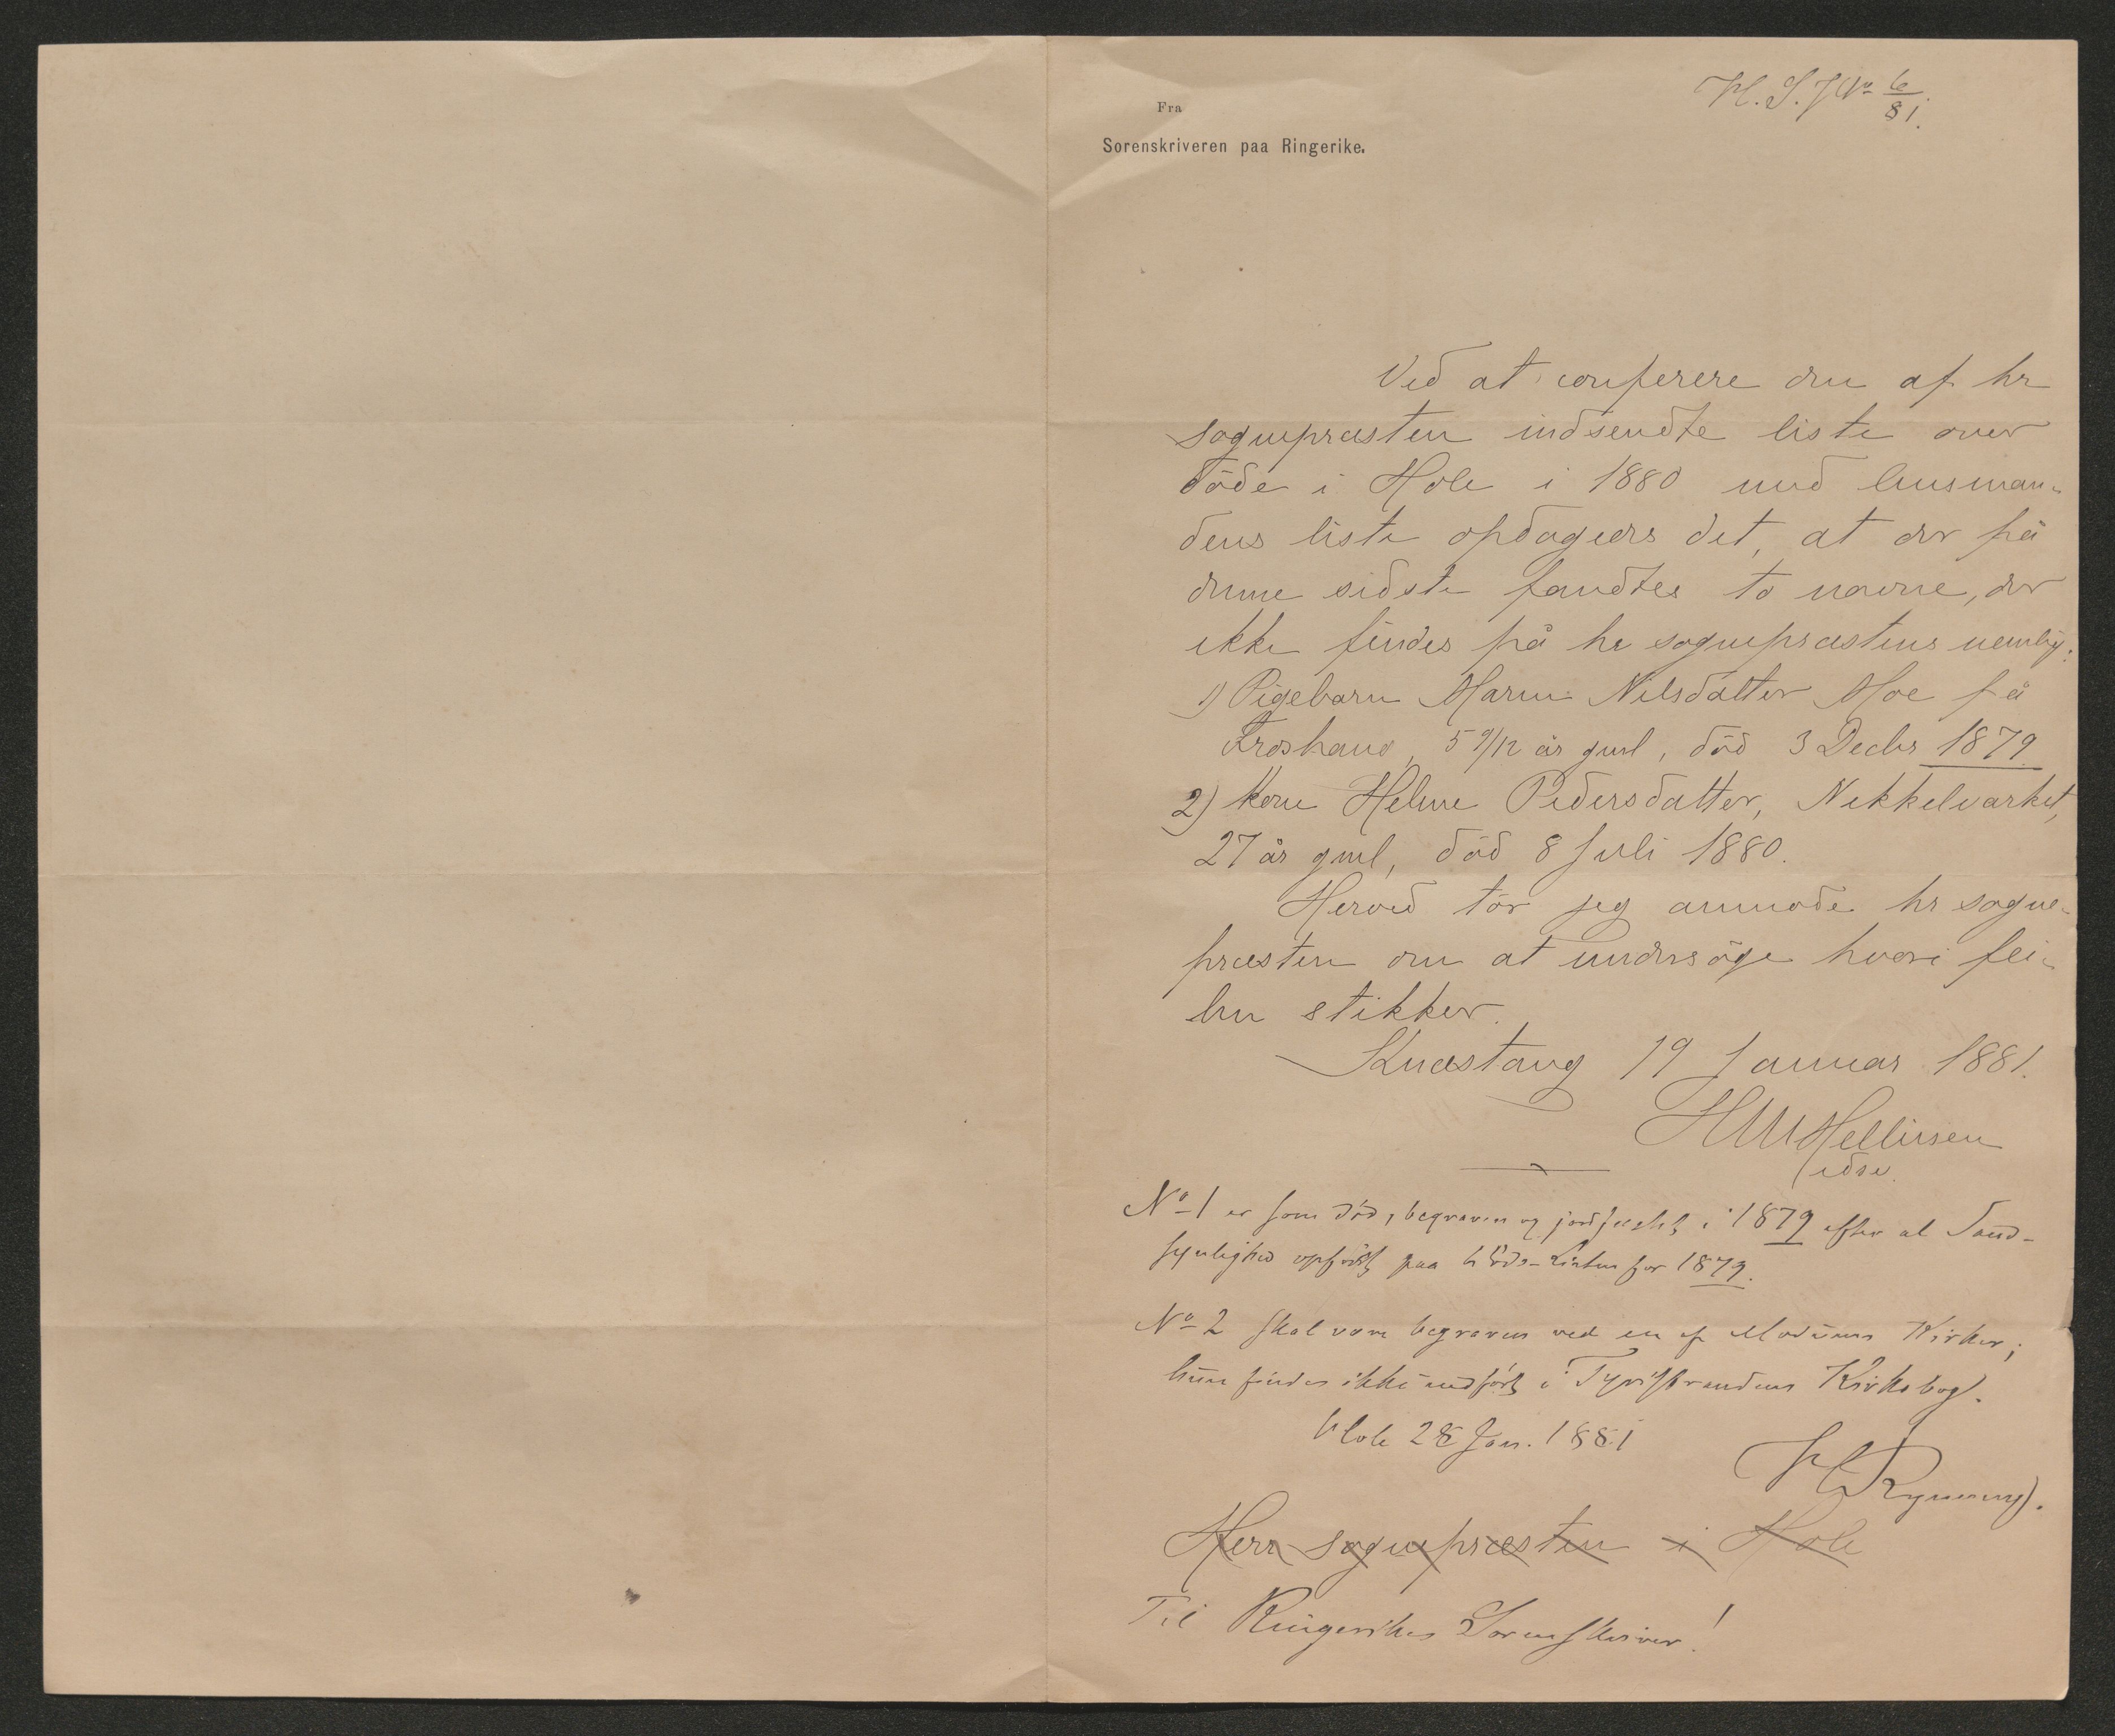 H. S. J No 6/81.
Fra
Sorenskriveren paa Ringerike.
Ved at conferere den af hr
sognepræsten indsendte liste over
døde i Hole i 1880 med lensman-
dens liste opdagedes det, at der på
denne sidste fandtes to navne, der
ikke findes på hr sognepræstens nemlig:
1) Pigebarn Maren Nilsdatter Moe på
Froshaug, 5 9/12 år gml, död 3 Decbr 1879.
2) Kone Helene Pedersdatter, Nikkelværket,
27 år gml, död 8 Juli 1880.
Herved tör jeg anmode hr sogne-
præsten om at undersöge hvori fei-
len stikker.
Knæstang 19 Januar 1881.
Hellesen
edsv.
No 1 er som död, begraven og jordfæstet i 1879 efter al Sand-
synlighed opfört paa Döds-Listen for 1879.
No 2 skal være begraven ved en af Modums Kirker;
hun findes ikke indfört i Tyristrandens Kirkebog.
Hole 28 Jan. 1881
Herr sognepræsten i Hole
Til Ringerikes Sorenskriver!